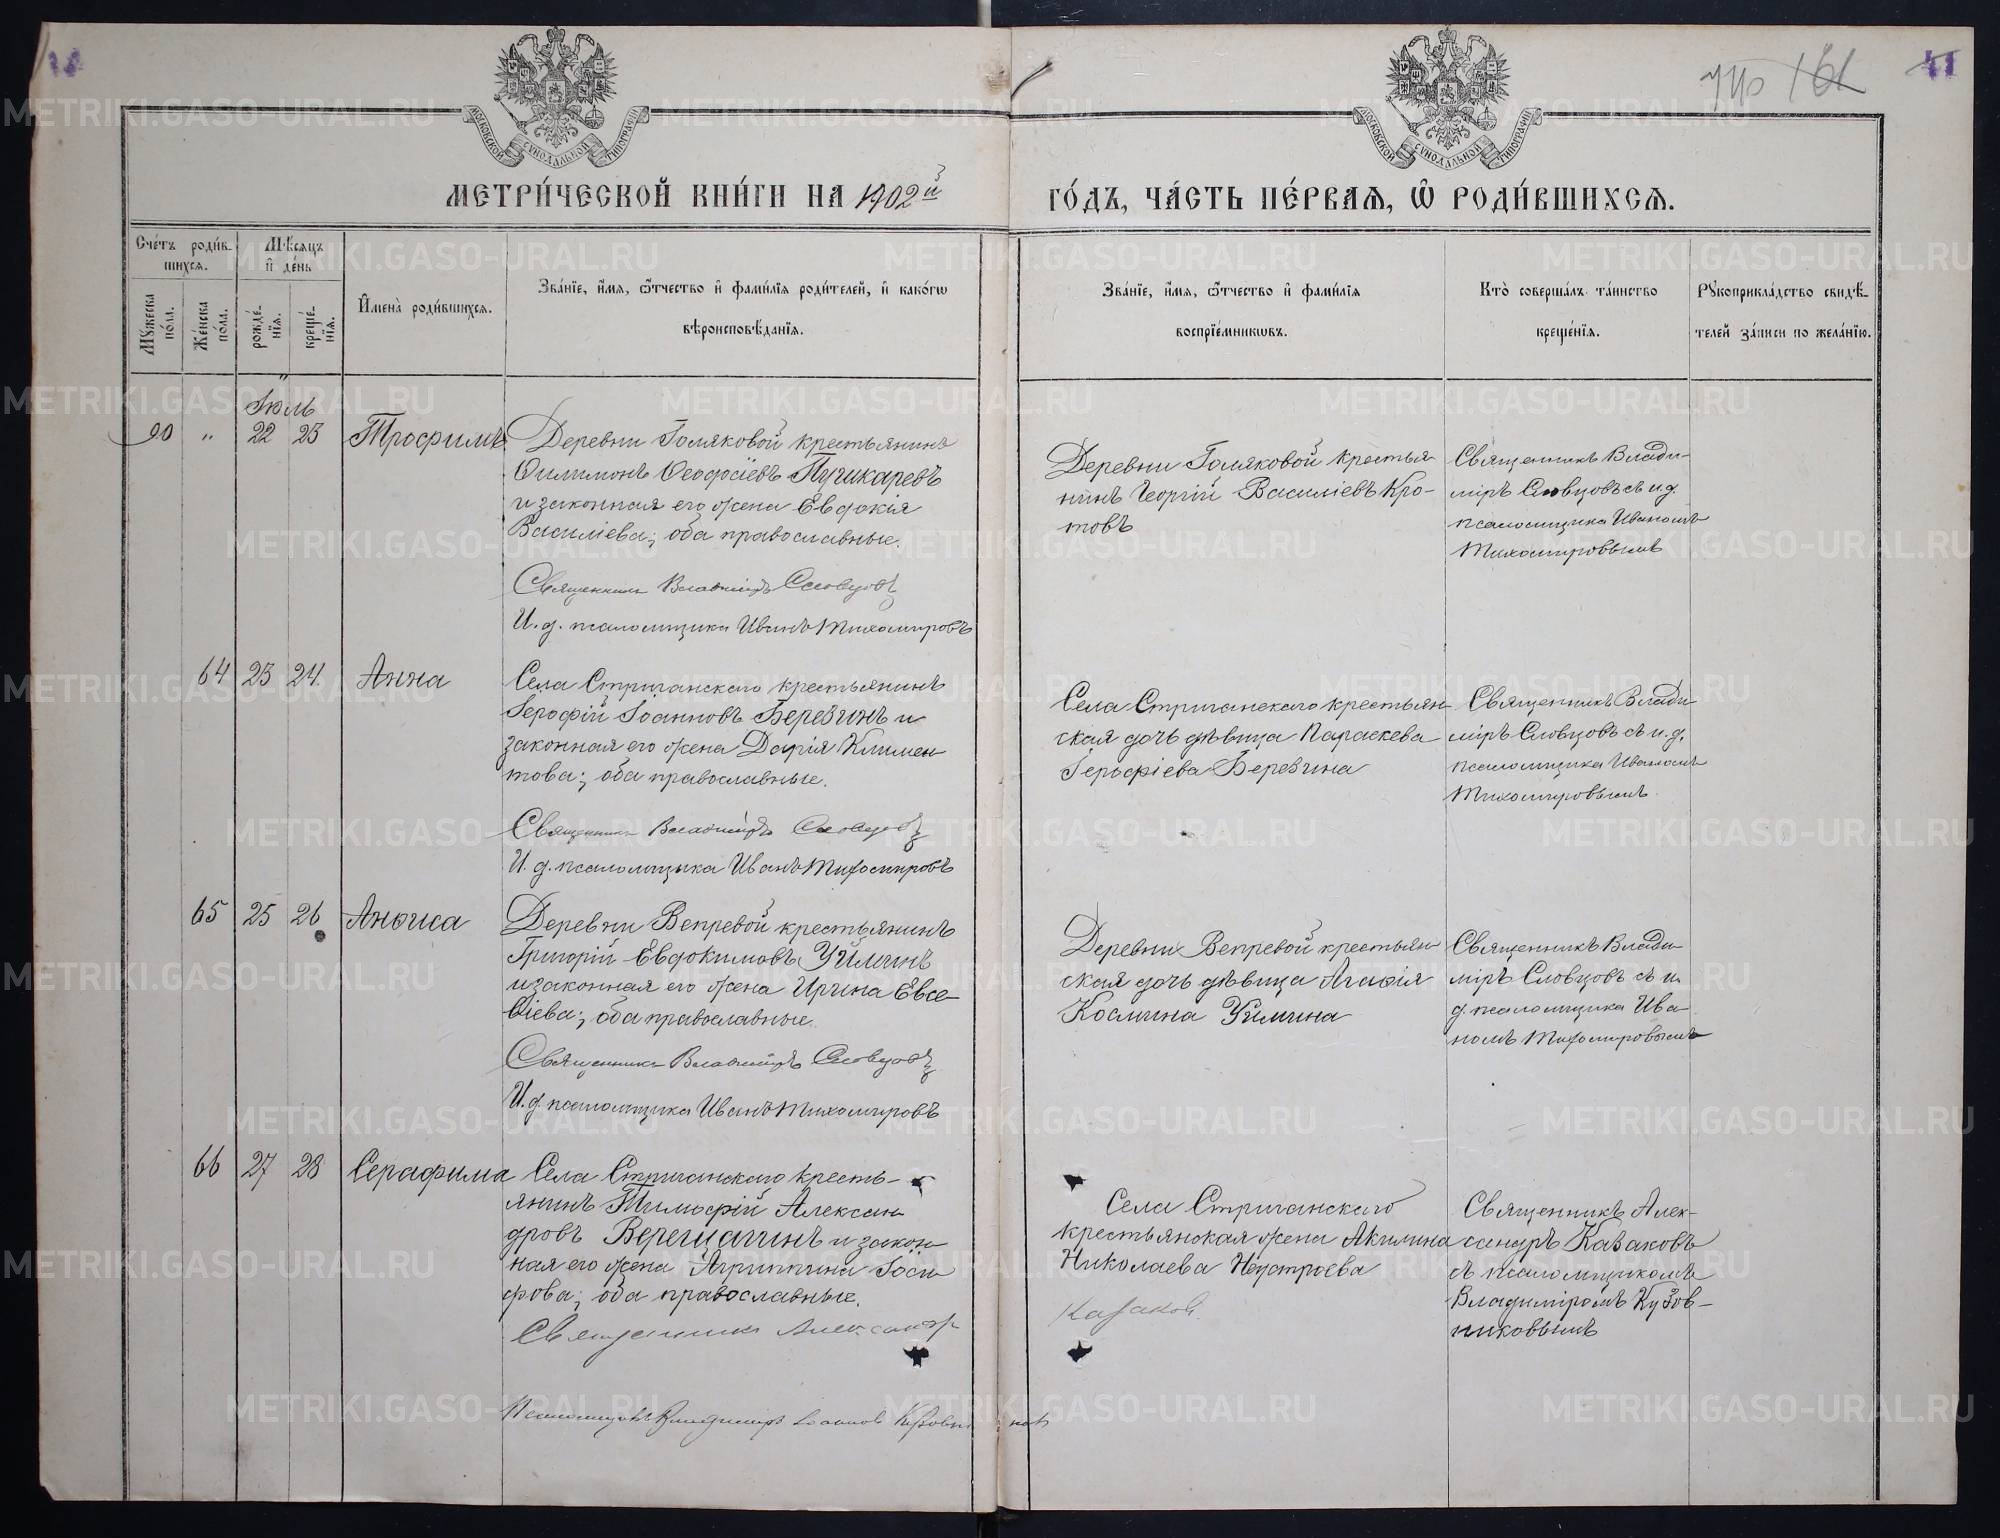 МОСКОВСКОЙ СѴНОДАЛЬНОЙ ТИПОГРАФІИ
МОСКОВСКОЙ СѴНОДАЛЬНОЙ ТИПОГРАФІИ
161
41
МЕТРИ́ЧЕСКОЙ КНИ́ГИ НА 1902й
ГО́ДЪ, ЧА́СТЬ ПЕ́РВАѦ, Ѡ҆ РОДИ́ВШИХСѦ.
Счетъ роди́в-
шихсѧ.
Мѣсѧцъ
и҆ де́нь
Мꙋжеска по́ла.
Же́нска по́ла.
рожде́-нїѧ.
креще́-нїѧ.
И҆мена̀ роди́вшихсѧ.
Зва́нїе, и҆́мѧ, ѻ҆́тчество и҆ фами́лїѧ роди́телей, и҆ како́гѡ
вѣроисповѣ́данїѧ.
Зва́нїе, и҆́мѧ, ѻ҆́тчество и҆ фами́лїѧ
воспрїе́мникѡвъ.
Кто̀ соверша́лъ та́инство
креще́нїѧ.
Рꙋкоприкла́дство свидѣ́-
телей за́писи по жела́нїю.
Іюль
90 " 22 23 Трофимъ
Деревни Голяковой крестьянинъ
Филимонъ Феодосіевъ Пушкаревъ
и законная его жена Евдокія
Василіева; оба православные.
Священникъ Владиміръ Словцовъ
И. д. псаломщика Иванъ Тихомировъ
Деревни Голяковой крестья
нинъ Георгій Василіевъ Кро-
товъ
Священникъ Влади-
міръ Словцовъ съ и.д.
псаломщика Иваномъ
Тихомировымъ
64 23 24. Анна
Села Стриганскаго крестьянинъ
Іерофій Іоанновъ Березинъ и
законная его жена Дарія Климен
това; оба православные.
Священникъ Владиміръ Словцовъ
И. д. псаломщика Иванъ Тихомировъ
Села Стриганскаго крестьян
ская дочь дѣвица Параскева
Іерофіева Березина
Священникъ Влади
міръ Словцовъ съ и.д.
псаломщика Иваномъ
Тихомировымъ.
65 25 26 Анфиса
Деревни Вепревой крестьянинъ
Григорій Евдокимовъ Уйминъ
и законная его жена Ирина Евсе-
віева; оба православные.
Священникъ Владиміръ Словцовъ
И. д. псаломщика Иванъ Тихомировъ
Деревни Вепревой крестьян
ская дочь дѣвица Агафія
Космина Уймина
Священникъ Влади
міръ Словцовъ съ и.
д. псаломщика Ива
номъ Тихомировымъ
66 27 28 Серафима
Села Стриганскаго кресть-
янинъ Тимофій Алексан
дровъ Верещагинъ и закон
ная его жена Агриппина Іоси
фова; оба православные.
Священникъ Александр
Казаков.
Псаломщикъ Владимиръ Іоанновъ Кузовниковъ
Села Стриганскаго
крестьянская жена Акилина
Николаева Неустроева
Священникъ Алек-
сандръ Казаковъ
съ псаломщикомъ
Владиміромъ Кузов-
никовымъ
METRIKI.GASO-URAL.RU